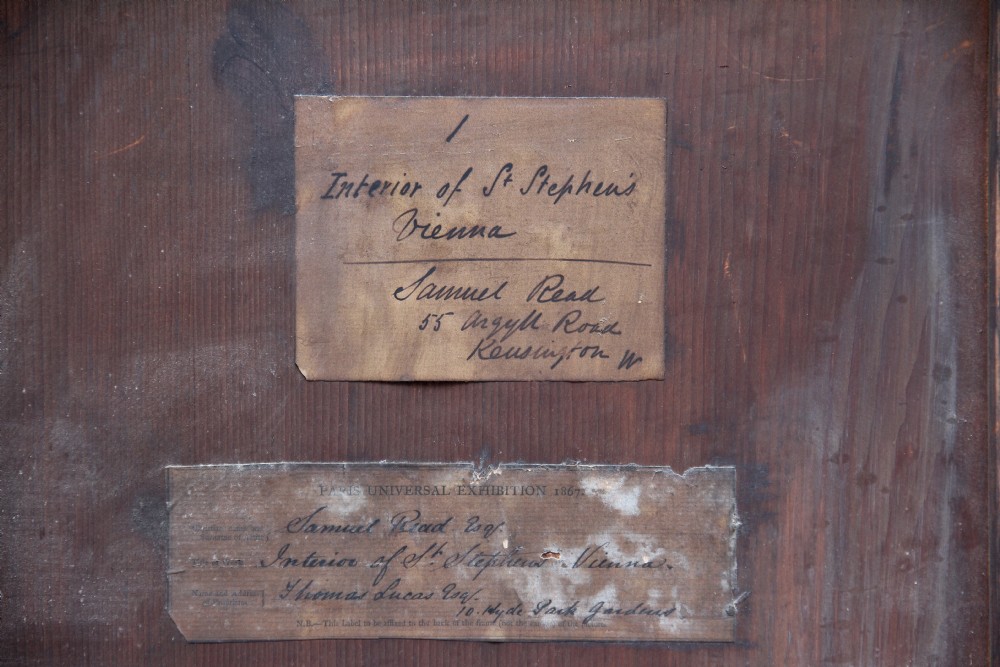 1
Interior of St Stephen's
Vienna
Samuel Read
55 Argyll Road
Kensington W
PARIS UNIVERSAL EXHIBITION 1867.
Samuel Read Esq.
Interior of St. Stephens Vienna.
Thomas Lucas Esq.
10. Hyde Park Gardens
N.B.—This Label to be affixed to the back of the